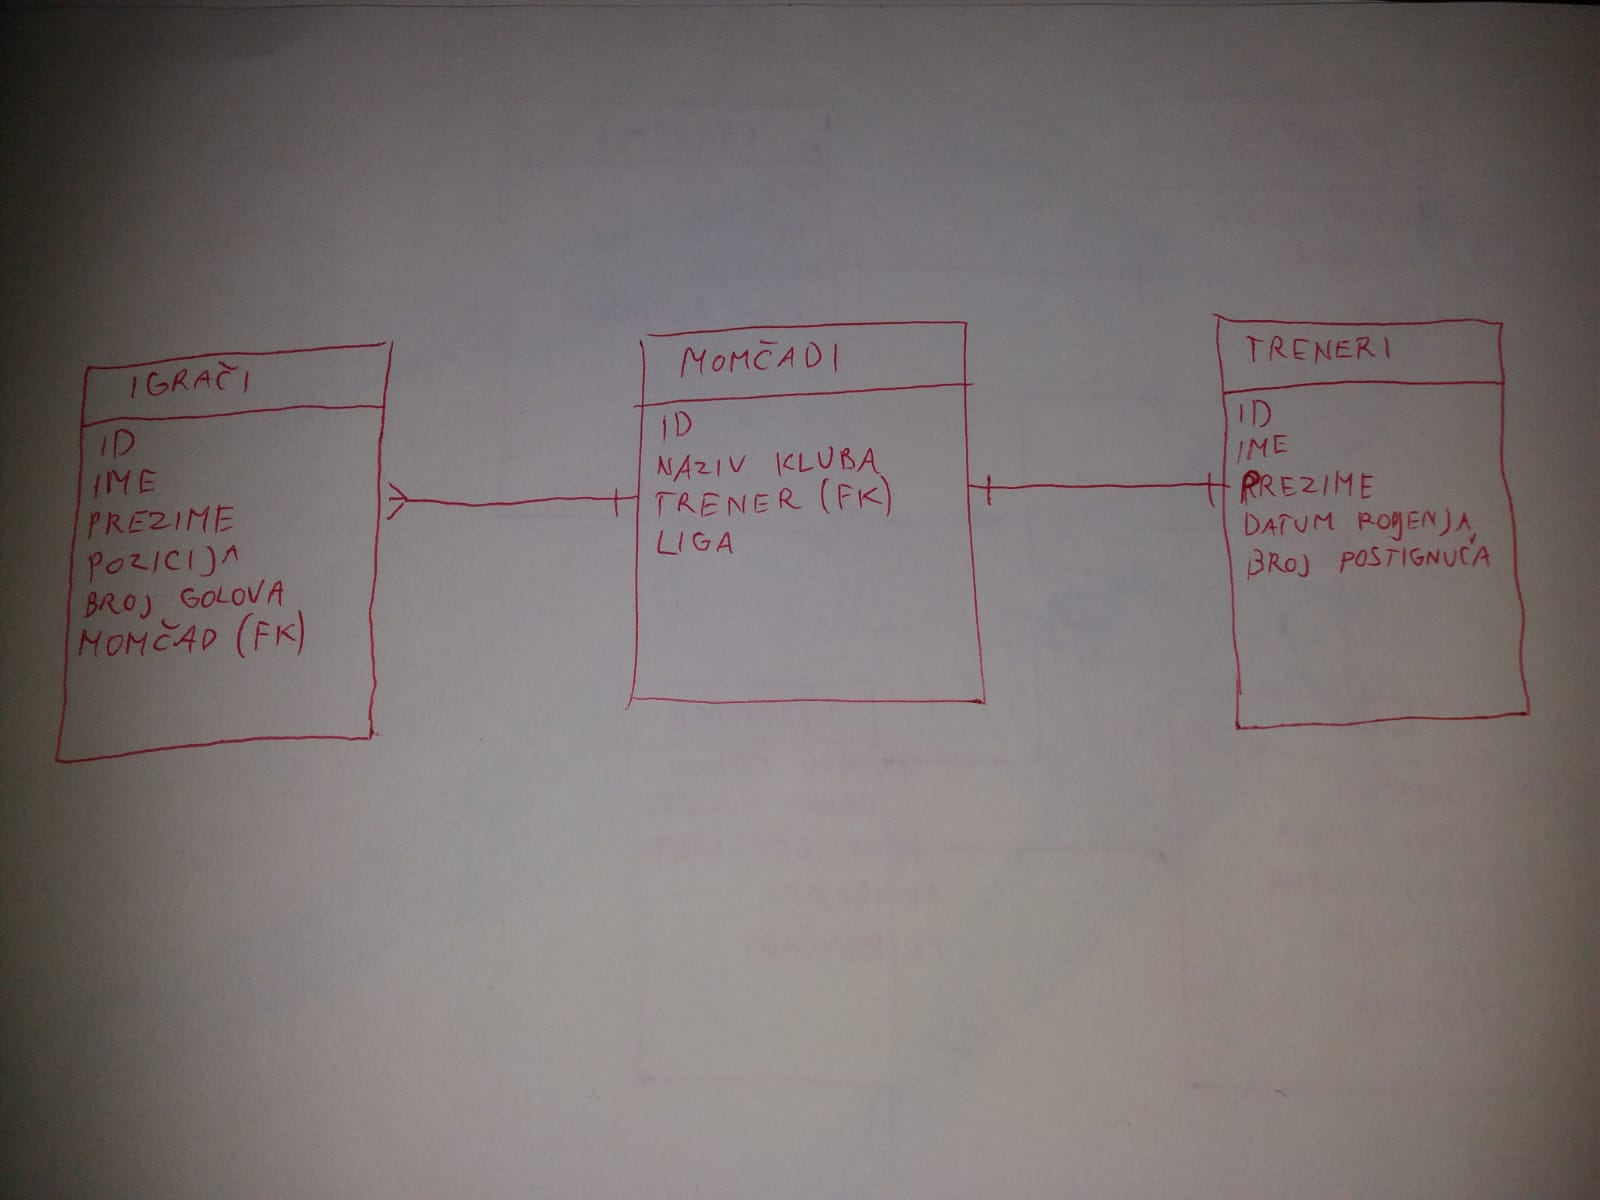 IGRAČI
ID
IME
PREZIME
POZICIJA
BROJ GOLOVA
MOMČAD (FK)
MOMČADI
ID
NAZIV KLUBA
TRENER (FK)
LIGA
TRENERI
ID
IME
PREZIME
DATUM ROĐENJA
BROJ POSTIGNUĆA